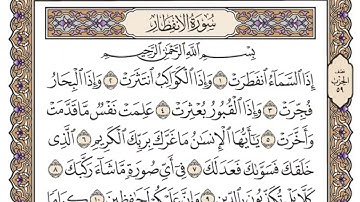 سُورَةُ الانفِطَارِ
بِسْمِ ٱللَّهِ ٱلرَّحْمَٰنِ ٱلرَّحِيمِ
إِذَا ٱلسَّمَآءُ ٱنفَطَرَتْ ١ وَإِذَا ٱلْكَوَاكِبُ ٱنتَثَرَتْ ٢ وَإِذَا ٱلْبِحَارُ
فُجِّرَتْ ٣ وَإِذَا ٱلْقُبُورُ بُعْثِرَتْ ٤ عَلِمَتْ نَفْسٌ مَّا قَدَّمَتْ
وَأَخَّرَتْ ٥ يَٰٓأَيُّهَا ٱلْإِنسَٰنُ مَا غَرَّكَ بِرَبِّكَ ٱلْكَرِيمِ ٦ ٱلَّذِى
خَلَقَكَ فَسَوَّىٰكَ فَعَدَلَكَ ٧ فِىٓ أَىِّ صُورَةٍ مَّا شَآءَ رَكَّبَكَ ٨
كَلَّا بَلْ تُكَذِّبُونَ بِٱلدِّينِ ٩ وَإِنَّ عَلَيْكُمْ لَحَٰفِظِينَ ١٠ كِرَامًا
الحزب
٥٩